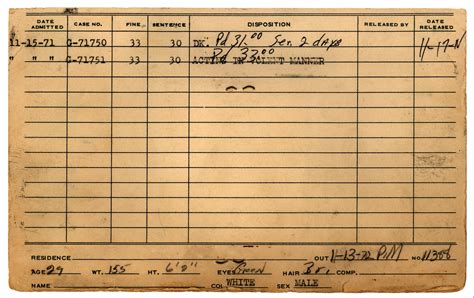 DATE ADMITTED CASE NO. FINE SENTENCE DISPOSITION RELEASED BY DATE RELEASED
11-15-71 G-71750 33 30 DK. Pd 31.00 Ser. 2 days 11-17-N
" " " G-71751 33 30 ACTING IN VIOLENT MANNER Pd 33.00
RESIDENCE OUT 11-13-72 P.M NO. 11358
AGE 29 WT. 155 HT. 6'2" EYES Green HAIR Br. COMP.
NAME COL WHITE SEX MALE